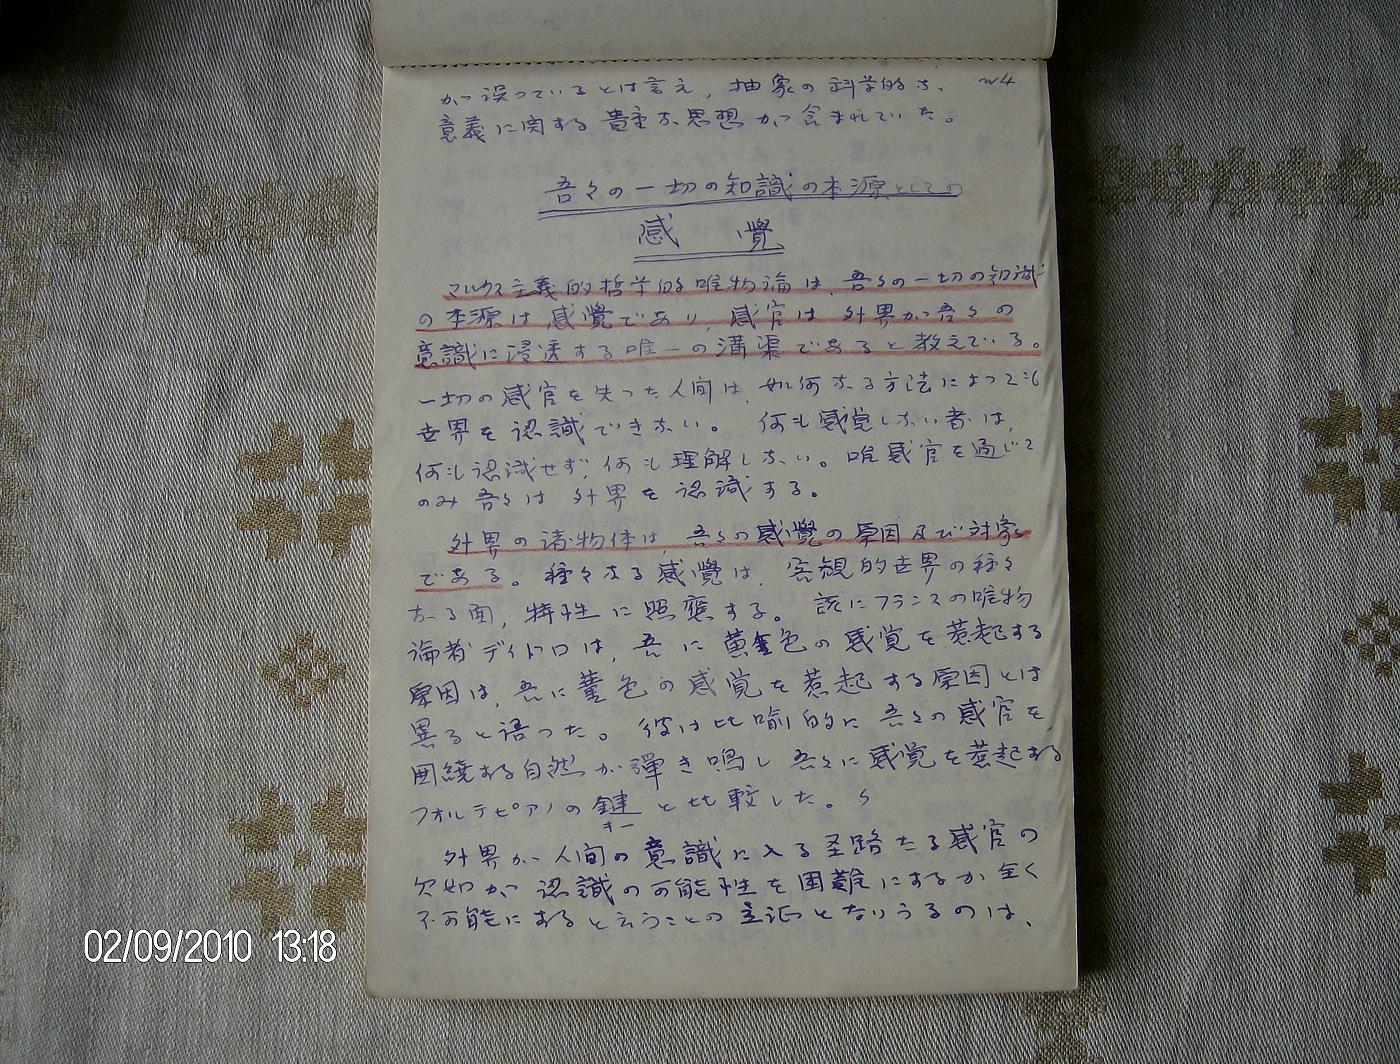 が誤っているとは言え，抽象の科学的な，
意義に関する貴重な思想が含まれていた。
吾々の一切の知識の本源としての
感覺
マルクス主義的哲学的唯物論は，吾々の一切の知識
の本源は感覺であり，感官は外界が吾々の
意識に浸透する唯一の溝渠であると教えている。
一切の感官を失った人間は，如何なる方法によっても
世界を認識できない。何も感覚しない者は，
何も認識せず，何も理解しない。唯感官を通じて
のみ吾々は外界を認識する。
外界の諸物体は，吾々の感覺の原因及び対象
である。種々なる感覺は，客観的世界の種々
なる面，特性に照應する。該にフランスの唯物
論者ディドロは，吾に黄金色の感覚を惹起する
原因は，吾に菫色の感覚を惹起する原因とは
異ると語った。彼は比喩的に吾々の感官を，
囲繞する自然が弾き鳴し吾々に感覚を惹起する
フォルテピアノの鍵と比較した。
キー
外界が人間の意識に入る圣路たる感官の
欠如が認識の可能性を困難にするか全く
不可能にするということの主証となりうるのは，
02/09/2010 13:18